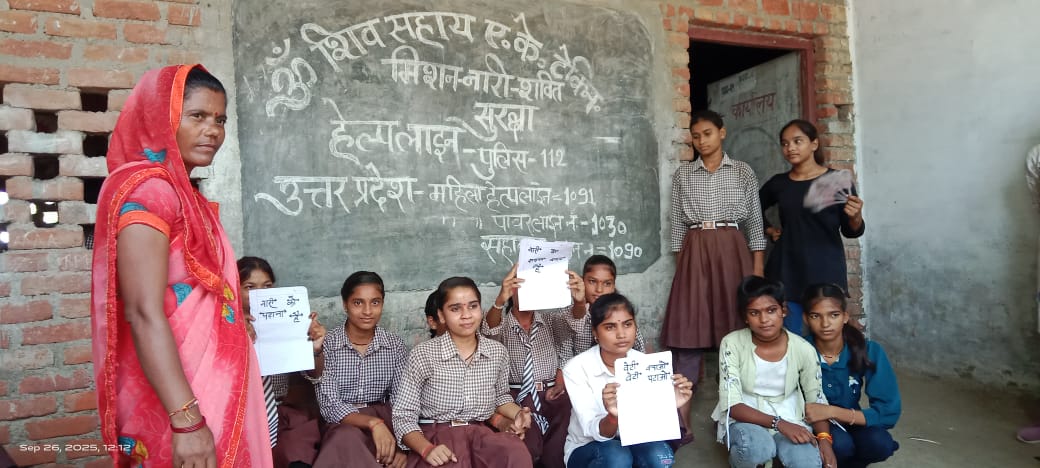 ॐ शिव सहाय ए.के.
मिशन-नारी-शक्ति
सुरक्षा
हेल्पलाइन - पुलिस - 112
उत्तर प्रदेश - महिला हेल्पलाइन = 1091
" " पावरलाइन नं - 1030
= 1090
कार्यालय
नारी को
है
बेटी बचाओ
बेटी पढ़ाओ
Sep 26, 2025, 12:12